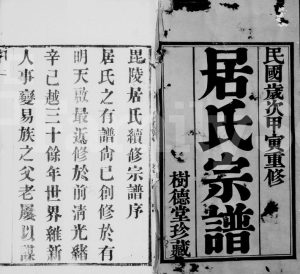 民國歲次甲寅重修
居氏宗譜
樹德堂珍藏
毘陵居氏續修宗譜序
居氏之有譜尚已創修於有
明天啟最近修於前清光緒
辛已越三十餘年世界維新
人事變易族之父老屢以謀